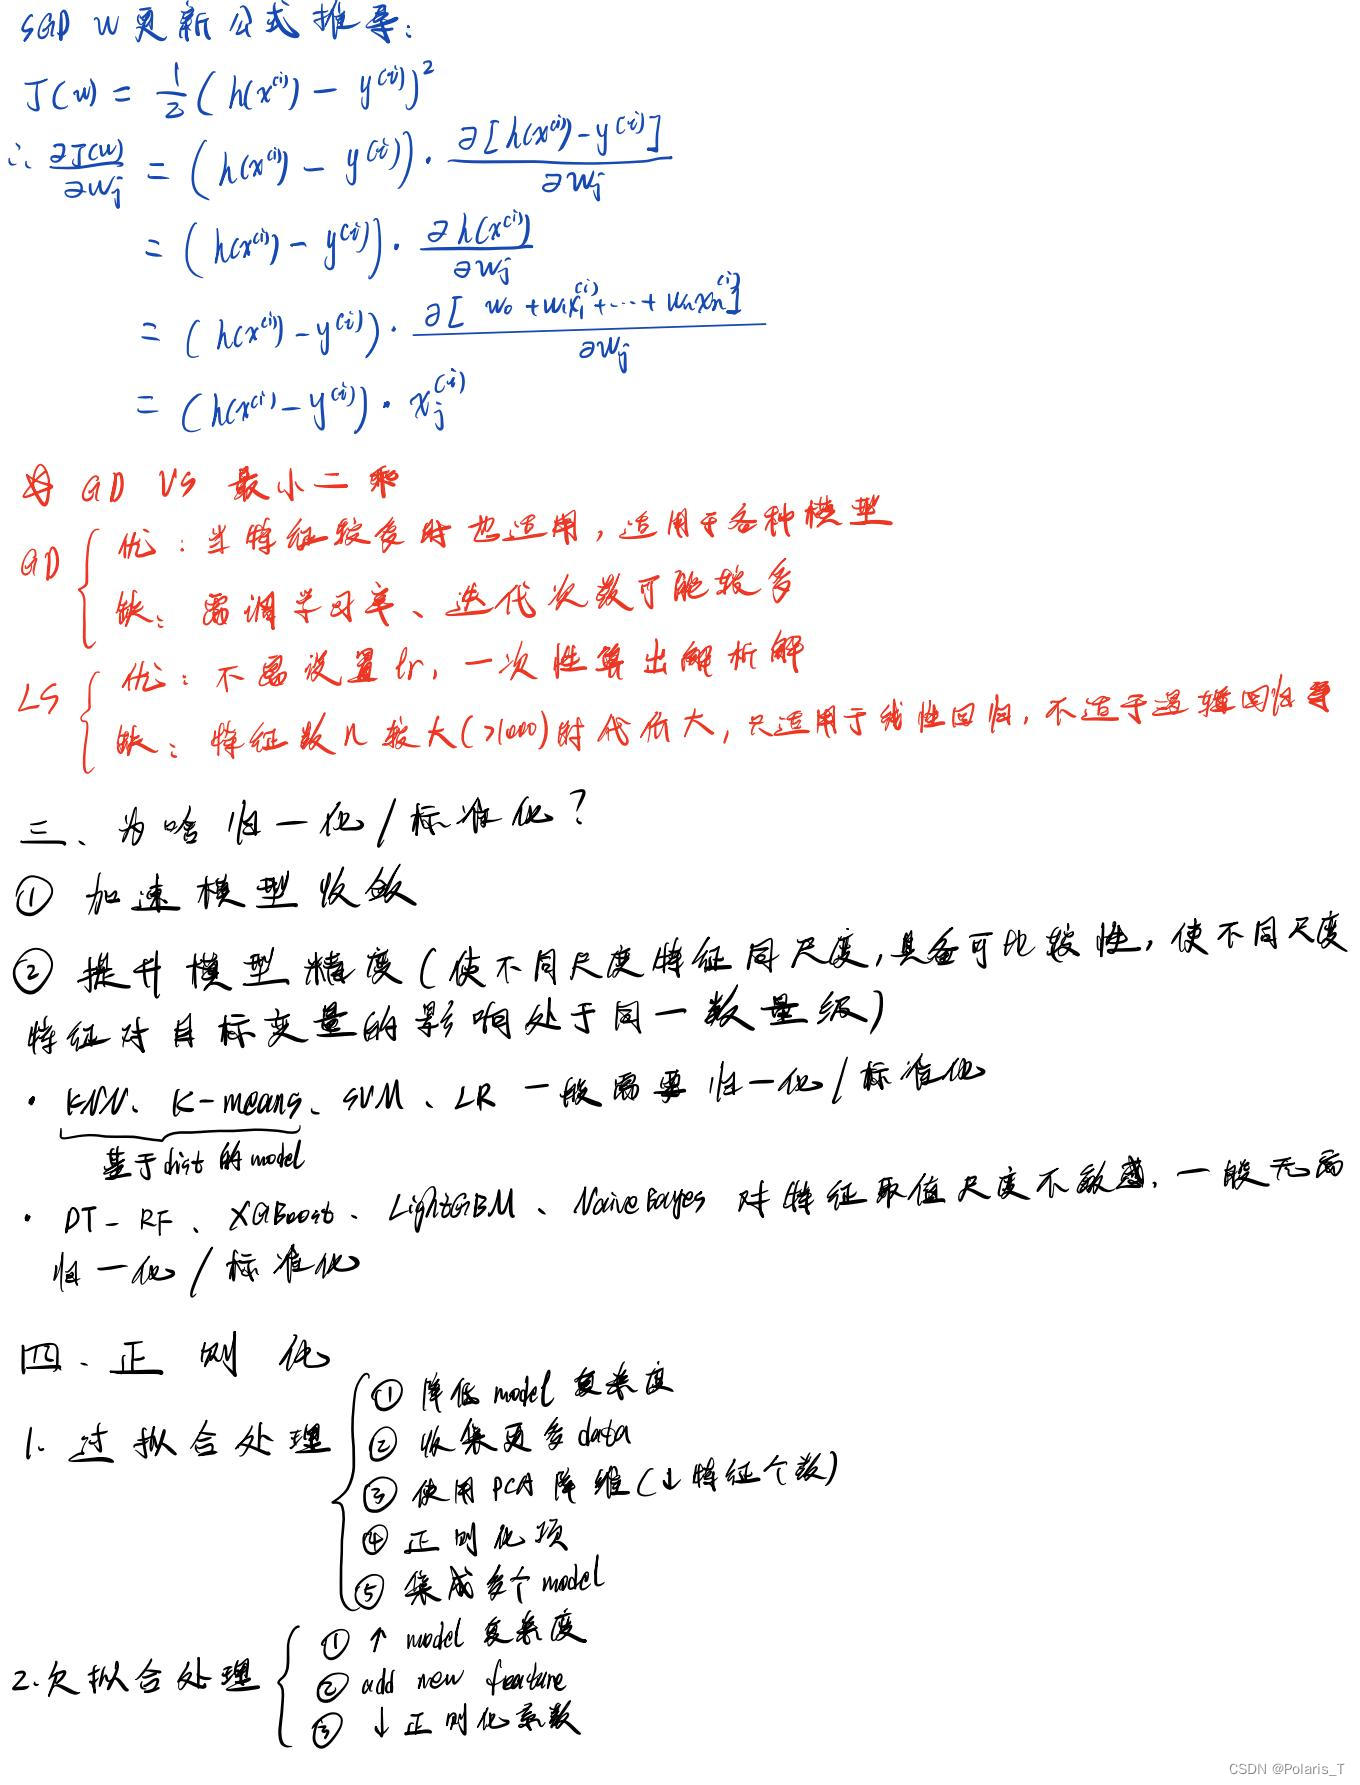 SGD w更新公式推导:
J(w) = 1/2 (h(x^(i)) - y^(i))^2
∴ ∂J(w)/∂w_j = (h(x^(i)) - y^(i)) · ∂[h(x^(i)) - y^(i)]/∂w_j
= (h(x^(i)) - y^(i)) · ∂h(x^(i))/∂w_j
= (h(x^(i)) - y^(i)) · ∂[w_0 + w_1x_1^(i) + ··· + w_nx_n^(i)]/∂w_j
= (h(x^(i)) - y^(i)) · x_j^(i)
☆ GD VS 最小二乘
GD { 优:当特征较多时也适用,适用于各种模型
缺:需调学习率、迭代次数可能较多
LS { 优:不需设置lr,一次性算出解析解
缺:特征数n较大(>1000)时代价大,只适用于线性回归,不适于逻辑回归等
三、为啥归一化/标准化?
① 加速模型收敛
② 提升模型精度(使不同尺度特征同尺度,具备可比较性,使不同尺度
特征对目标变量的影响处于同一数量级)
· KNN、K-means、SVM、LR 一般需要归一化/标准化
基于dist的model
· DT-RF、XGBoost、LightGBM、Naive Bayes 对特征取值尺度不敏感,一般无需
归一化/标准化
四、正则化
1. 过拟合处理 { ① 降低model复杂度
② 收集更多data
③ 使用PCA降维(↓特征个数)
④ 正则化项
⑤ 集成多个model
2. 欠拟合处理 { ① ↑ model复杂度
② add new feature
③ ↓正则化系数
CSDN @Polaris_T